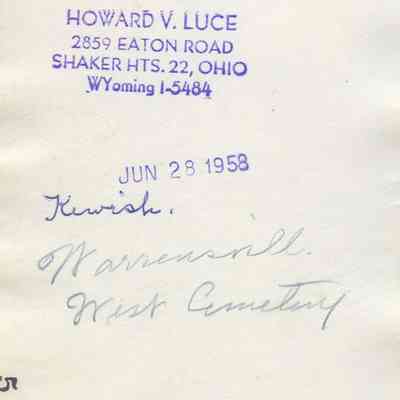 HOWARD V. LUCE
2859 EATON ROAD
SHAKER HTS. 22, OHIO
WYoming 1-5484
JUN 28 1958
Kewish.
Warrensvill.
West Cemetery